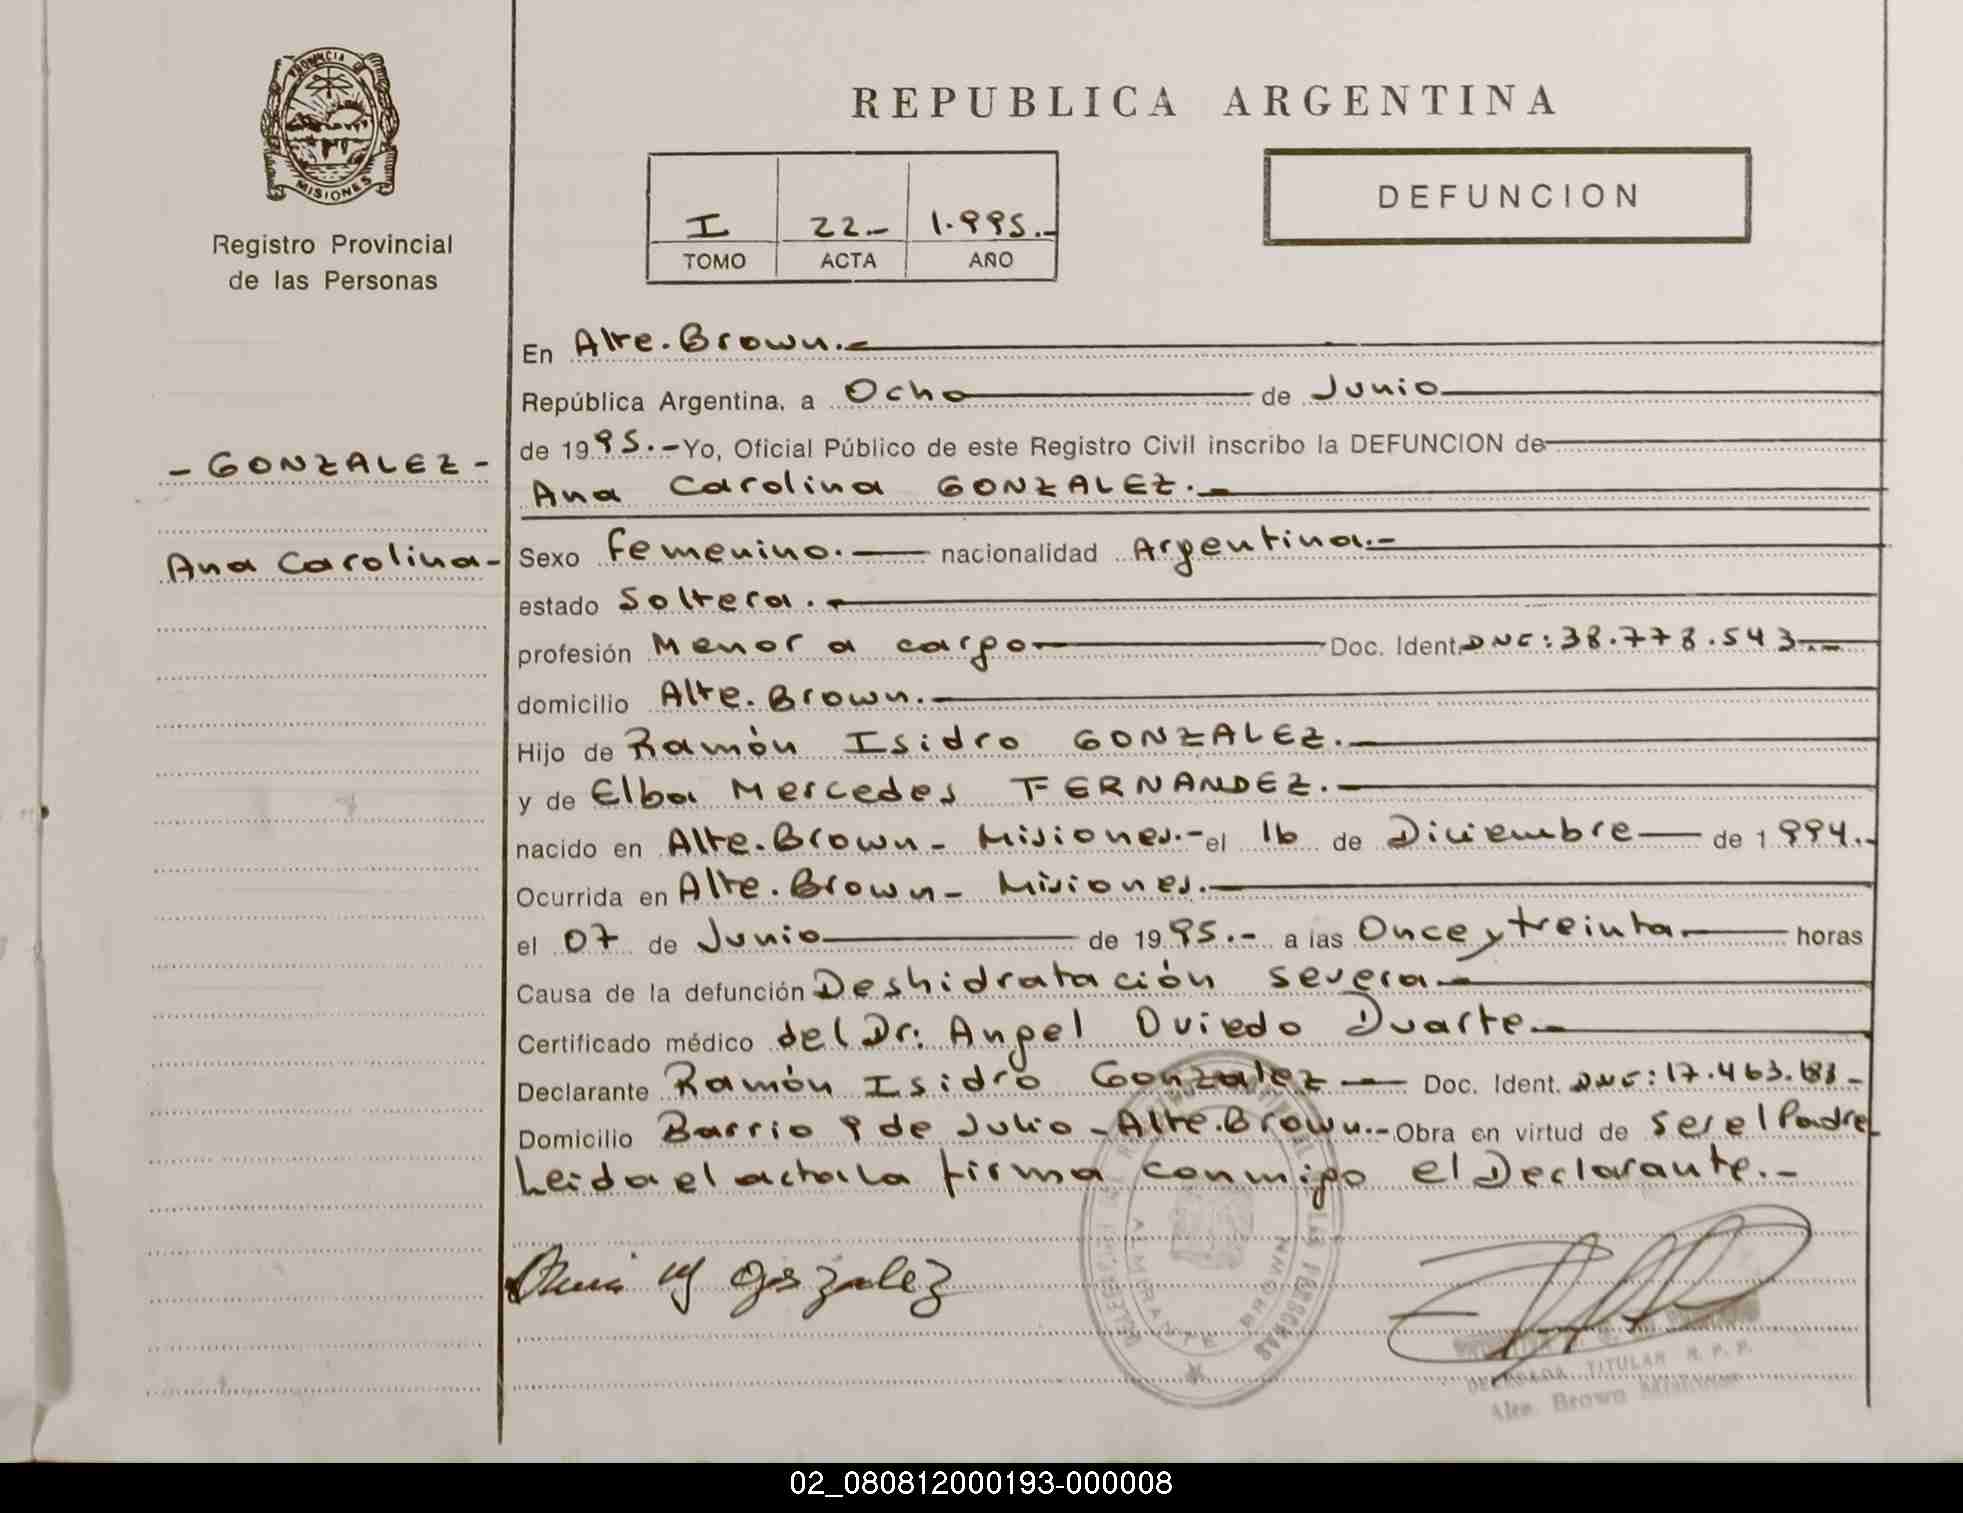 PROVINCIA DE
MISIONES
Registro Provincial
de las Personas
REPUBLICA ARGENTINA
DEFUNCION
I 22.- 1.995.-
TOMO ACTA AÑO
- GONZALEZ -
Ana Carolina-
En Alte. Brown.-
República Argentina, a Ocho de Junio
de 1995.- Yo, Oficial Público de este Registro Civil inscribo la DEFUNCION de
Ana Carolina GONZALEZ.-
Sexo femenino.- nacionalidad Argentina.-
estado Soltera.-
profesión Menor a cargo Doc. Ident. DNI: 38.778.543.-
domicilio Alte. Brown.-
Hijo de Ramón Isidro GONZALEZ.-
y de Elba Mercedes FERNANDEZ.-
nacido en Alte. Brown - Misiones.- el 16 de Diciembre de 1994.-
Ocurrida en Alte. Brown - Misiones.-
el 07 de Junio de 1995.- a las Once y treinta.- horas
Causa de la defunción Deshidratación severa.-
Certificado médico del Dr: Angel Oviedo Duarte.-
Declarante Ramón Isidro Gonzalez - Doc. Ident. DNI: 17.463.
Domicilio Barrio 9 de Julio - Alte. Brown.- Obra en virtud de ser el Padre-
Leida el acta la firma conmigo el Declarante.-
gozalez
ALMIRANTE BROWN
DELEGADA TITULAR R. P. P.
Alte. Brown Misiones
02_080812000193-000008